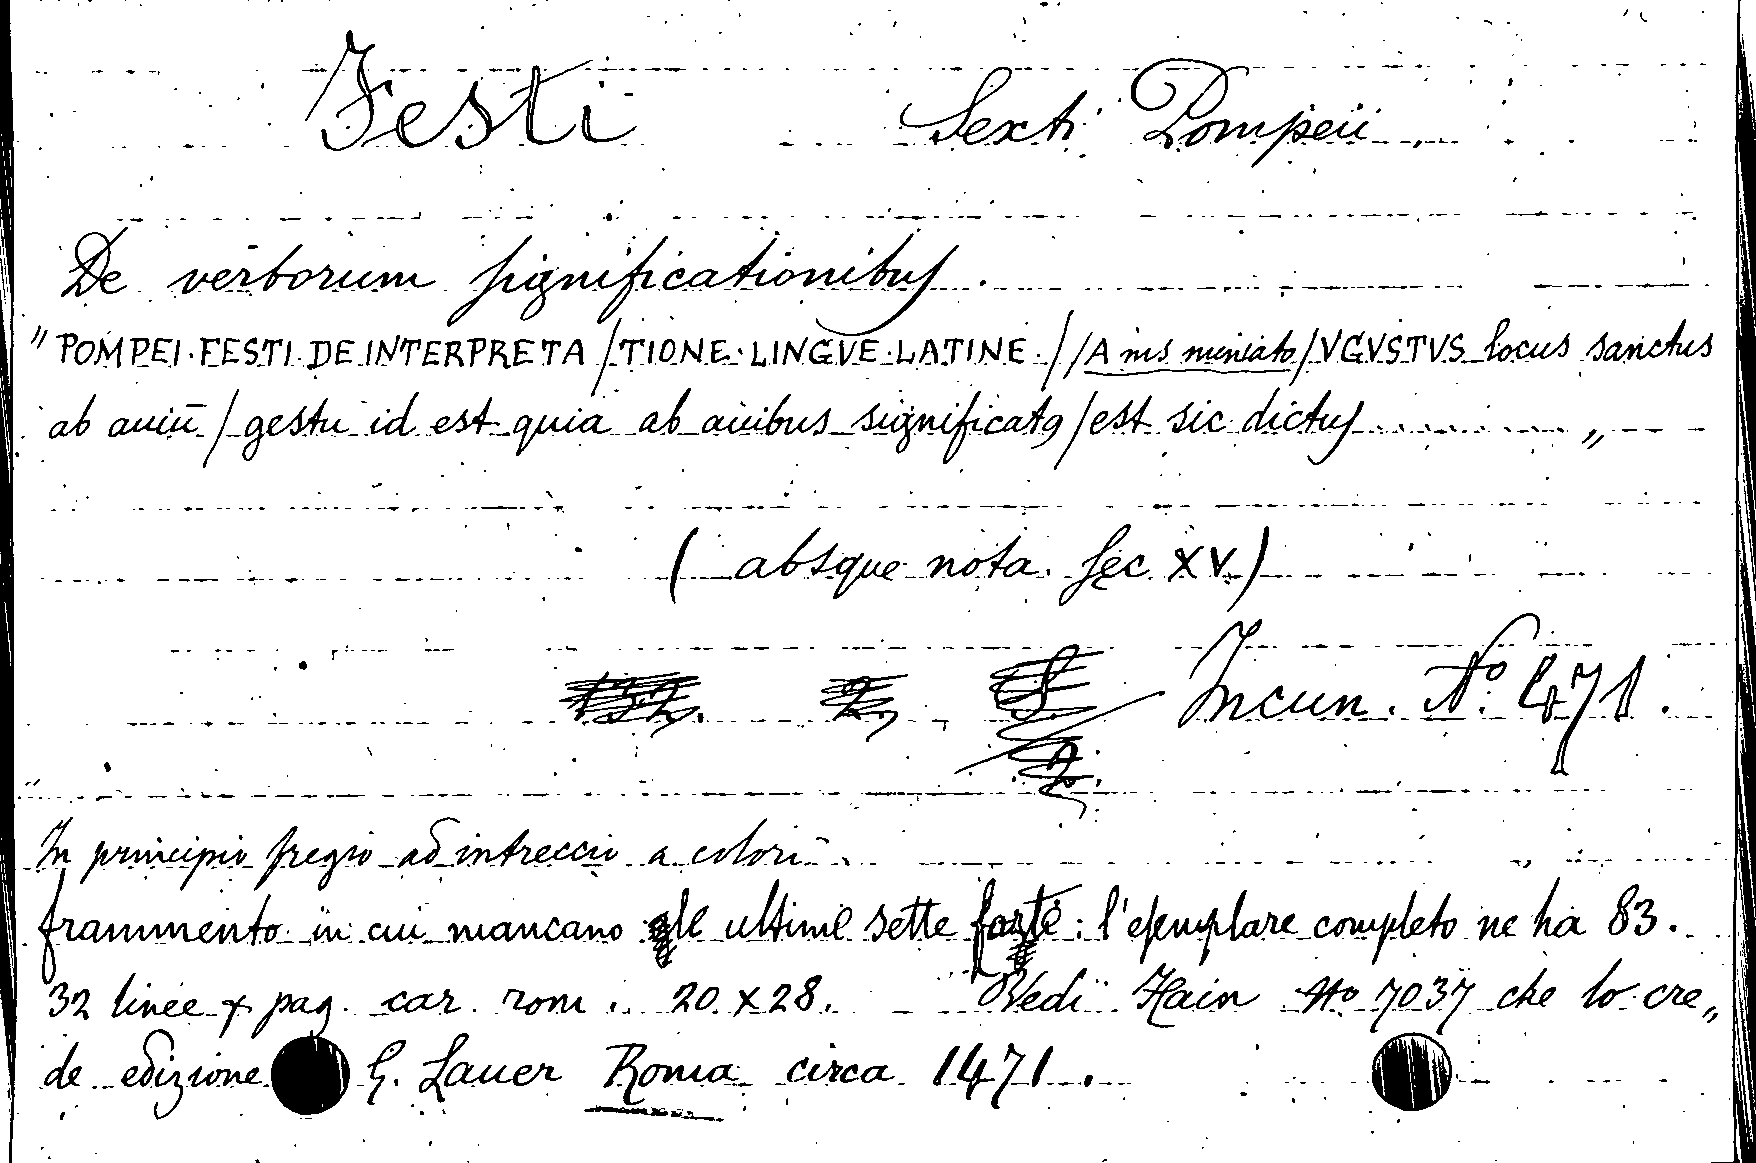 Festi Sexti Pompeii
De verborum significationibus.
"POMPEI·FESTI·DE INTERPRETA/TIONE·LINGVE·LATINE.//A ms miniato/VGVSTVS locus sanctus
ab auiū/gestu id est quia ab auibus significatꝯ/est sic dictus .......... "
(absque nota. Sec XV.)
Incun. Nº 471.
In principio fregio ad intrecci a colori.
frammento in cui mancano le ultime sette carte: l'esemplare completo ne ha 83.
32 linee x pag. car. rom. 20 x 28. Vedi Hain Nº 7037 che lo cre„
de edizione G. Lauer Roma circa 1471.